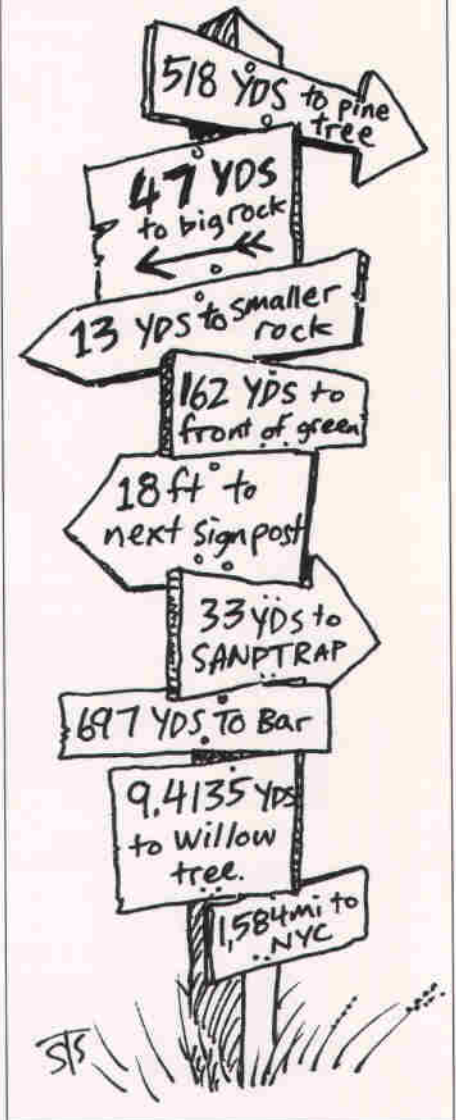 518 YDS to pine
tree
47 YDS
to big rock
13 YDS to smaller
rock
162 YDS to
front of green
18 ft to
next signpost
33 YDS to
SANDTRAP
697 YDS TO Bar
9.4135 YDS
to willow
tree.
1,584 mi to
NYC
STS